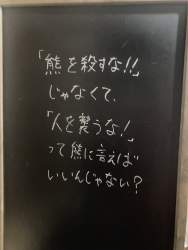 「熊を殺すな!!」
じゃなくて、
「人を襲うな!」
って熊に言えば
いいんじゃない?